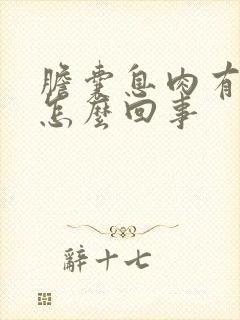 膽囊息肉有
怎麼回事
辭十七